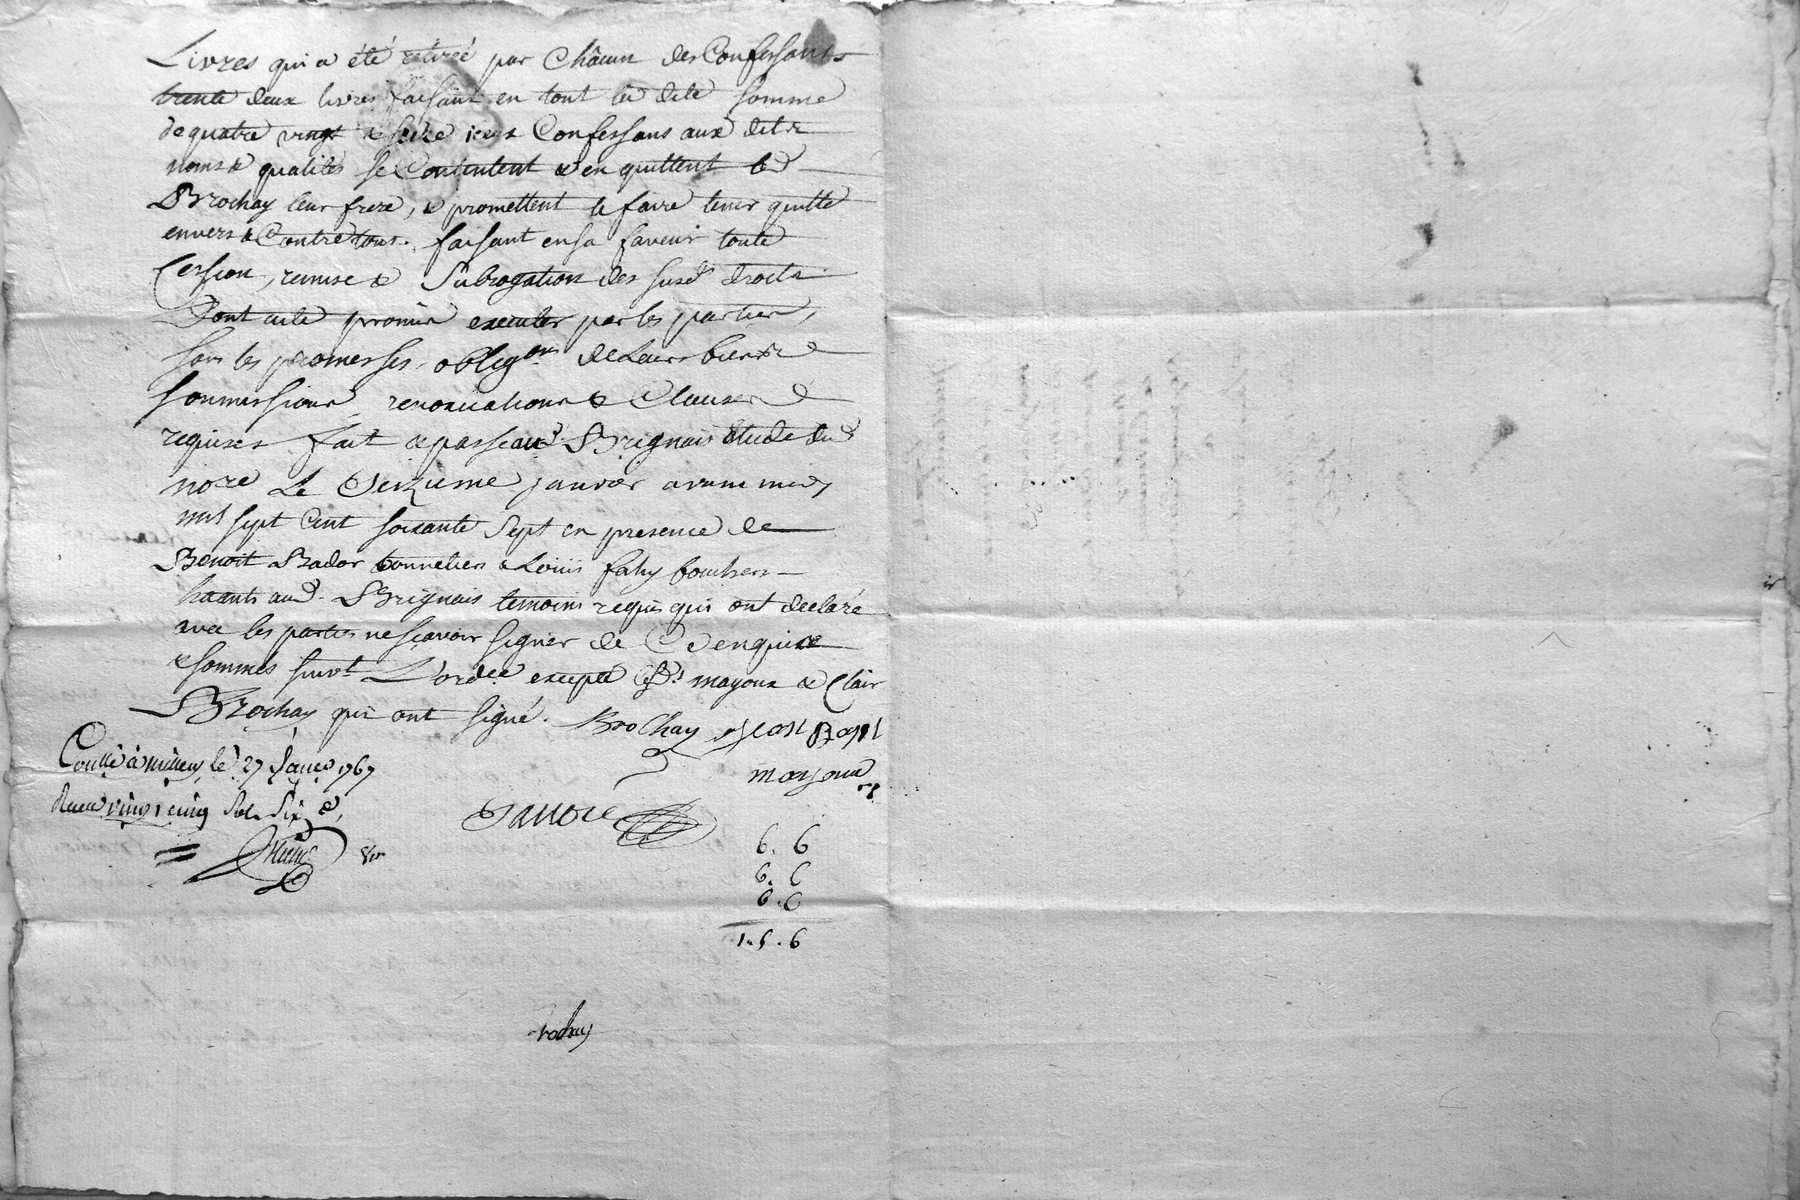 Livres qui a été retirée par Châcun des Confessans
trente deux livres faisant en tout la dite somme
de quatre vingt & seize iceux Confessans aux dits
noms & qualités se Contentent & en quittent led
Brochay leur frere, & promettent le faire tenir quitte
envers & Contre tous. faisant en sa faveur toute
Cession, remise & Subrogation des susd droits
Dont acte promis executer par les parties,
sous les promesses, obligons de Leurs biens
soumissions renonciations & Clauses
requises fait & passé aud. Brignais étude dud
nore Le Seizieme janvier avant midy
mil sept Cent soixante sept en presence de
Benoit Bador tonnelier & Louis fahy boucher
haants aud. Brignais temoins requis qui ont declaré
avec les parties ne sçavoir signer de Ce enquis
& sommés suivt L'ordce excepté lesd. mayoux & Clair
Brochay qui ont signé. Brochay Jean Bapt
mayoux
Conllé à millery le 27 Janer 1767
Reçu vingt cinq sols six d.
6. 6
6. 6
6. 6
1. 5. 6